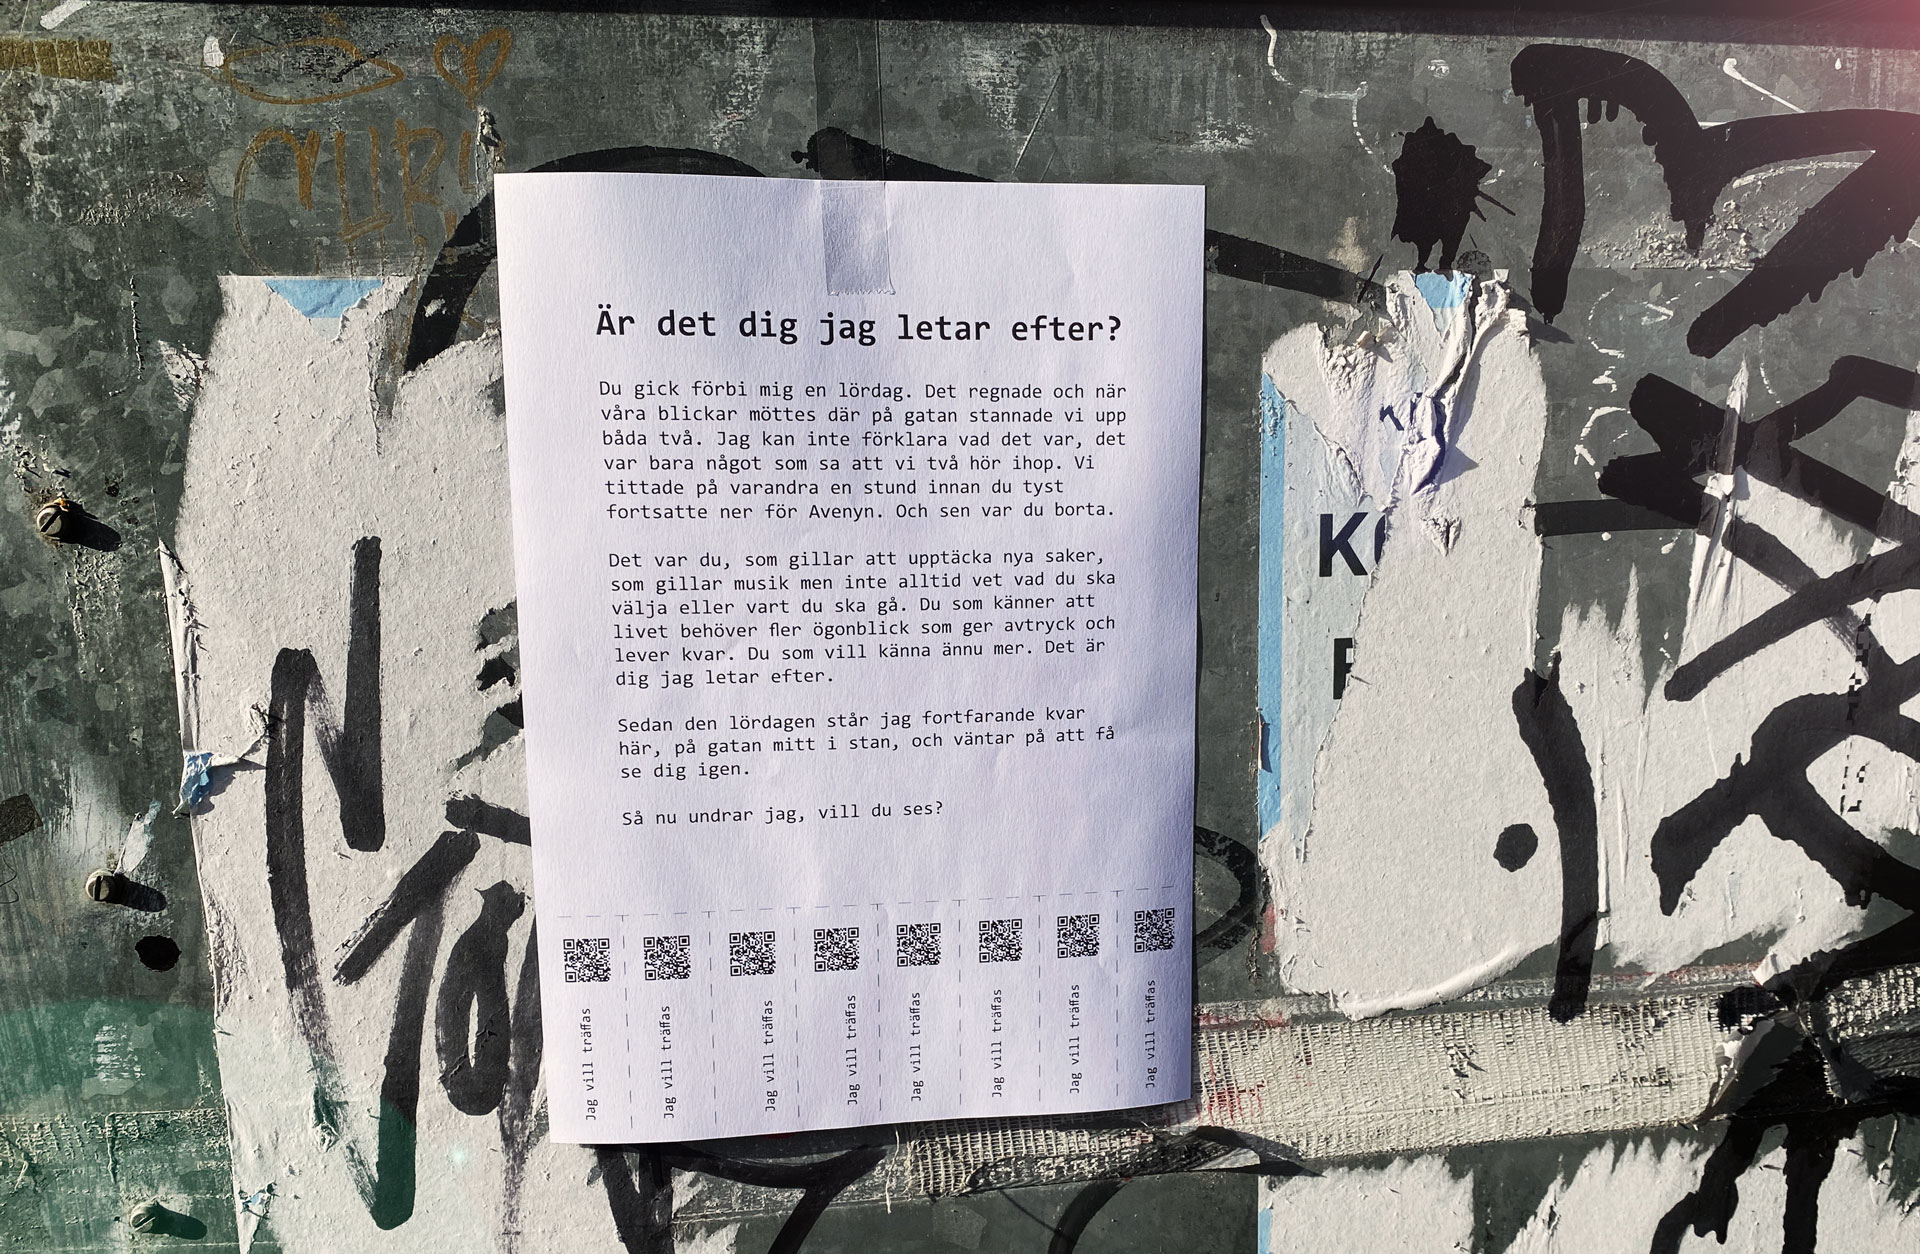 Är det dig jag letar efter?
Du gick förbi mig en lördag. Det regnade och när
våra blickar möttes där på gatan stannade vi upp
båda två. Jag kan inte förklara vad det var, det
var bara något som sa att vi två hör ihop. Vi
tittade på varandra en stund innan du tyst
fortsatte ner för Avenyn. Och sen var du borta.
Det var du, som gillar att upptäcka nya saker,
som gillar musik men inte alltid vet vad du ska
välja eller vart du ska gå. Du som känner att
livet behöver fler ögonblick som ger avtryck och
lever kvar. Du som vill känna ännu mer. Det är
dig jag letar efter.
Sedan den lördagen står jag fortfarande kvar
här, på gatan mitt i stan, och väntar på att få
se dig igen.
Så nu undrar jag, vill du ses?
Jag vill träffas
Jag vill träffas
Jag vill träffas
Jag vill träffas
Jag vill träffas
Jag vill träffas
Jag vill träffas
Jag vill träffas